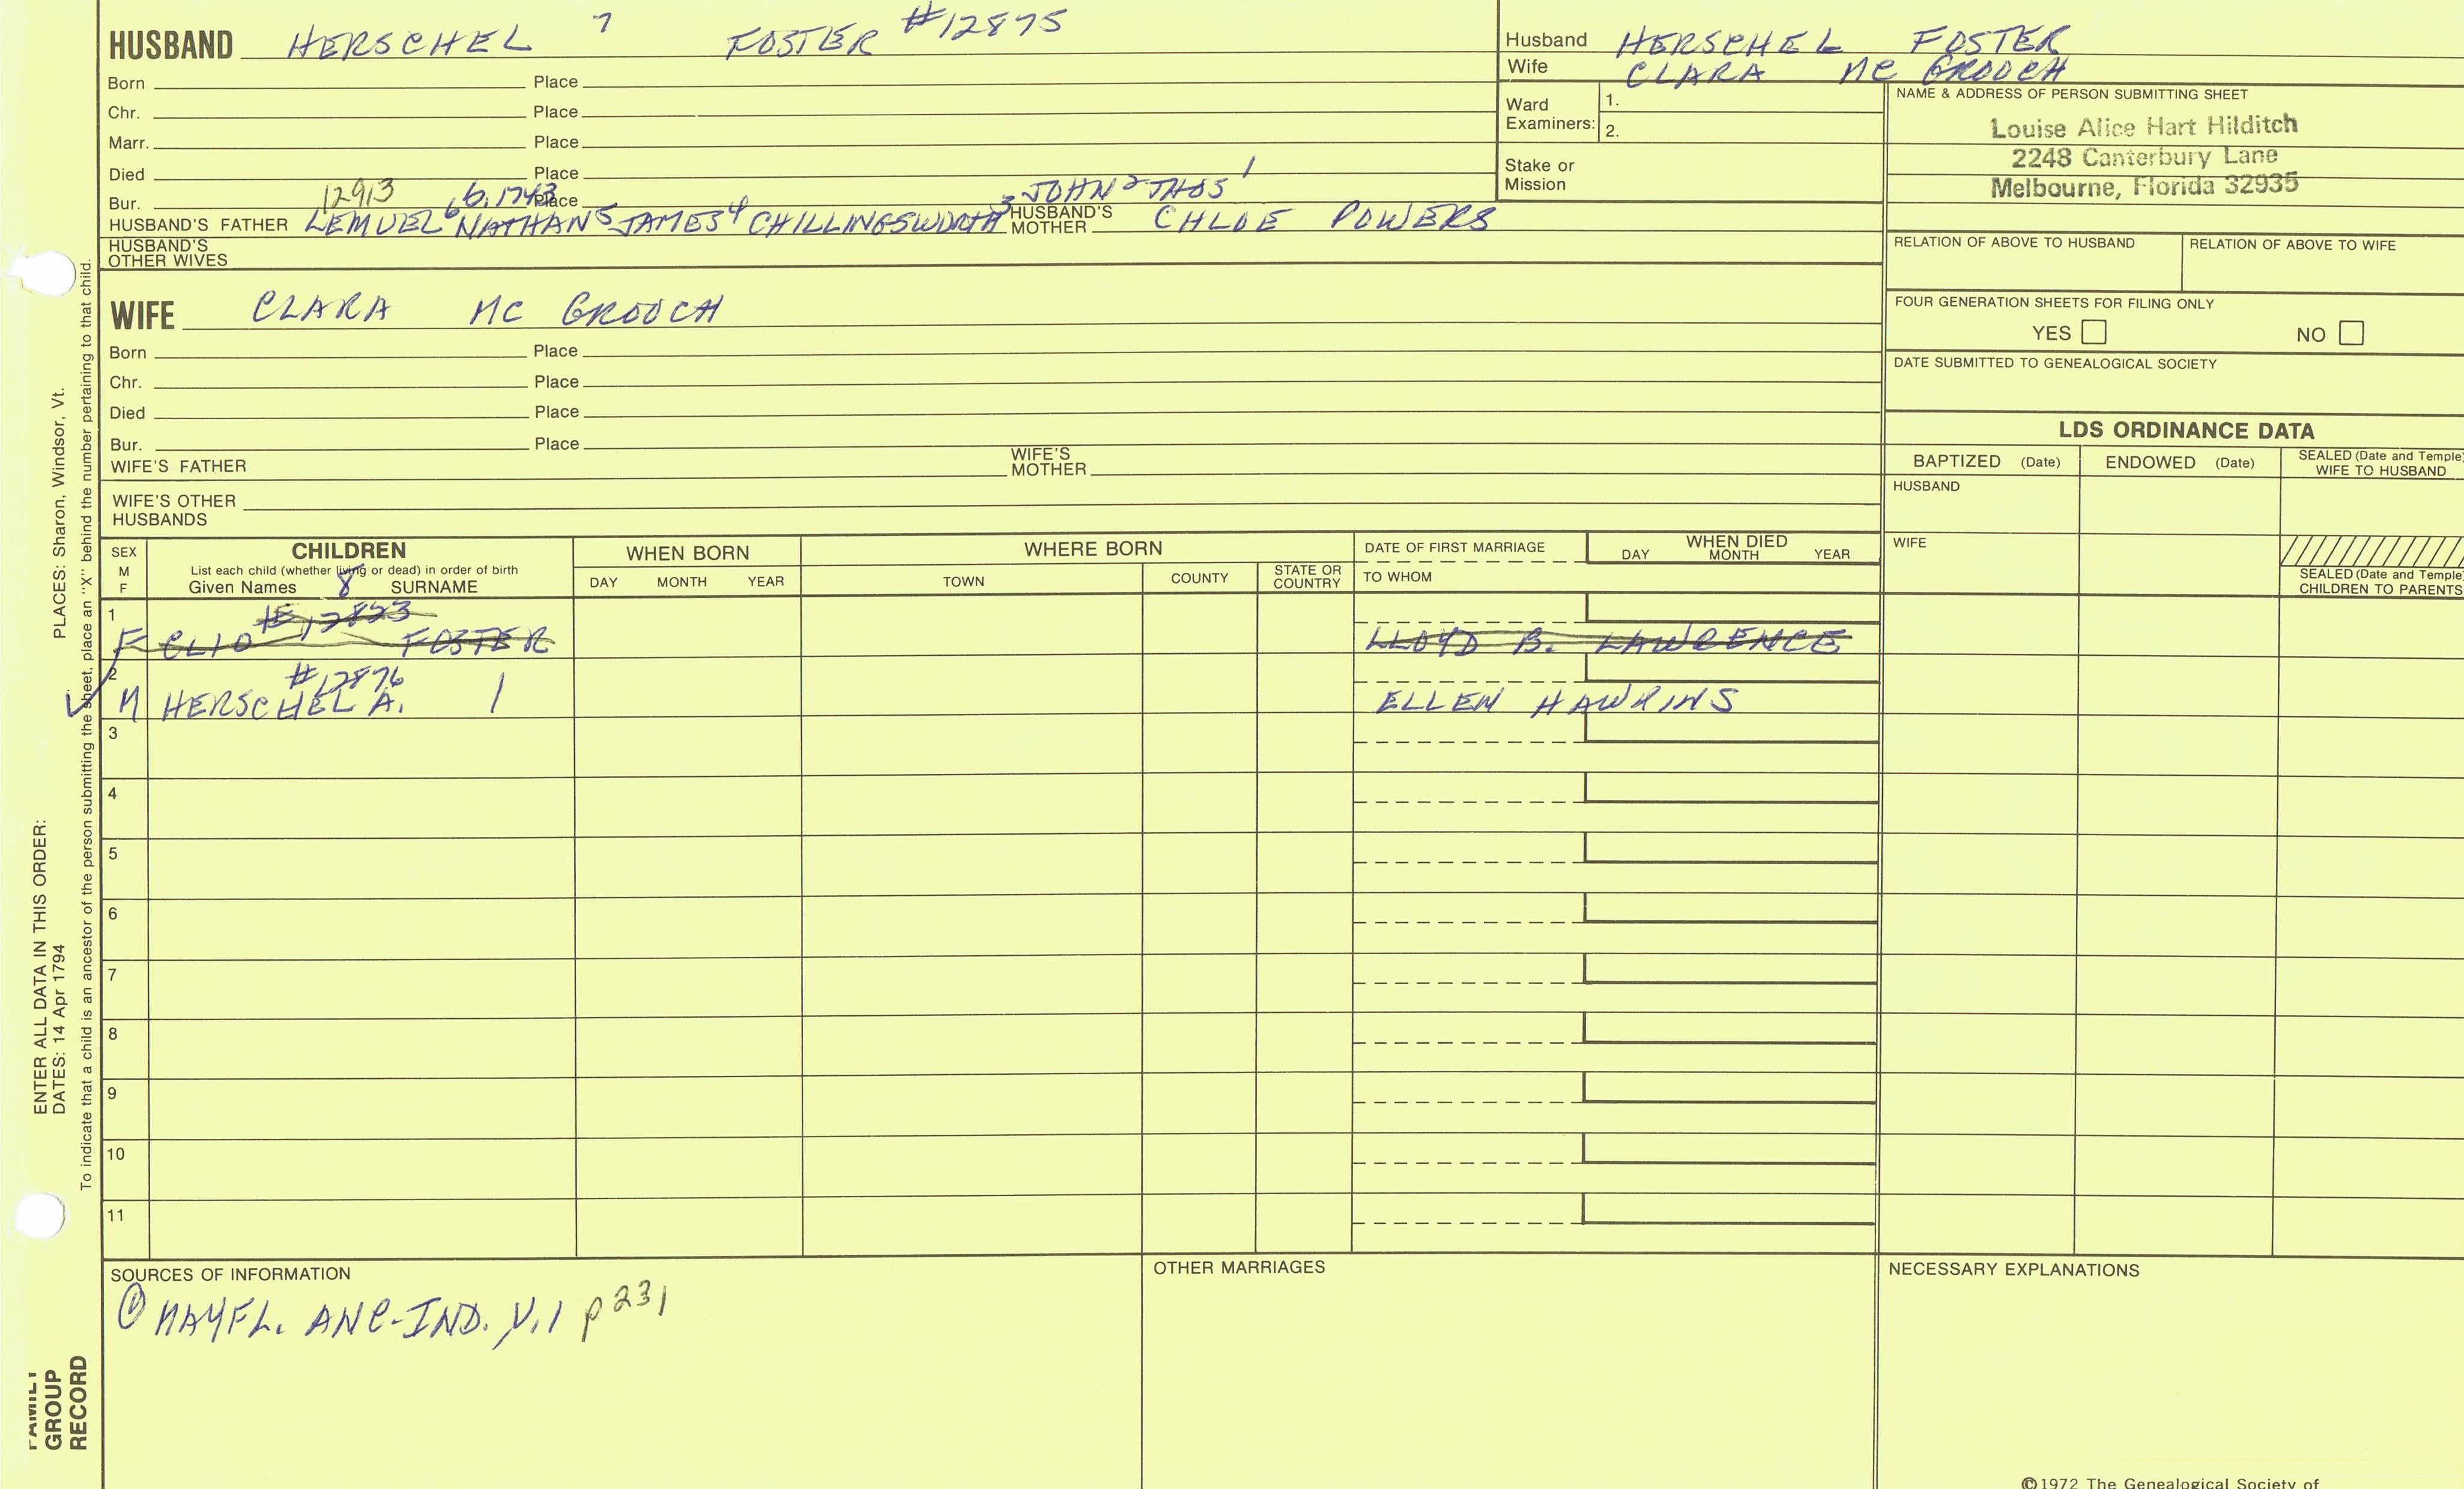 HUSBAND HERSCHEL 7 FOSTER #12875
Born Place
Chr. Place
Marr. Place
Died Place
Bur. 12913 b.1743 Place JOHN 2 THOS 1
HUSBAND'S FATHER LEMUEL 6 NATHAN 5 JAMES 4 CHILLINGSWORTH 3 HUSBAND'S MOTHER CHLOE POWERS
HUSBAND'S OTHER WIVES
WIFE CLARA MC GROOCH
Born Place
Chr. Place
Died Place
Bur. Place
WIFE'S FATHER WIFE'S MOTHER
WIFE'S OTHER HUSBANDS
Husband HERSCHEL FOSTER
Wife CLARA MC GROOCH
Ward Examiners: 1.
2.
Stake or Mission
NAME & ADDRESS OF PERSON SUBMITTING SHEET
Louise Alice Hart Hilditch
2248 Canterbury Lane
Melbourne, Florida 32935
RELATION OF ABOVE TO HUSBAND RELATION OF ABOVE TO WIFE
FOUR GENERATION SHEETS FOR FILING ONLY
YES NO
DATE SUBMITTED TO GENEALOGICAL SOCIETY
LDS ORDINANCE DATA
BAPTIZED (Date) ENDOWED (Date) SEALED (Date and Temple) WIFE TO HUSBAND
HUSBAND
WIFE
SEALED (Date and Temple) CHILDREN TO PARENTS
SEX M F CHILDREN WHEN BORN WHERE BORN DATE OF FIRST MARRIAGE WHEN DIED
List each child (whether living or dead) in order of birth
Given Names 8 SURNAME DAY MONTH YEAR TOWN COUNTY STATE OR COUNTRY TO WHOM DAY MONTH YEAR
1
F CLIO FOSTER LLOYD B. LAWRENCE
2 #12876
M HERSCHEL A. 1 ELLEN HAWKINS
3
4
5
6
7
8
9
10
11
SOURCES OF INFORMATION
① MAYFL. ANC-IND. V.1 p231
OTHER MARRIAGES
NECESSARY EXPLANATIONS
©1972 The Genealogical Society of
PLACES: Sharon, Windsor, Vt.
ENTER ALL DATA IN THIS ORDER:
DATES: 14 Apr 1794
To indicate that a child is an ancestor of the person submitting the sheet, place an "X" behind the number pertaining to that child.
FAMILY GROUP RECORD